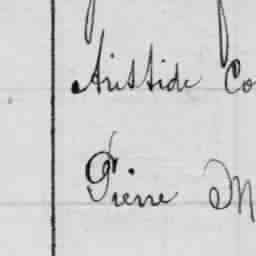 Aristide Co
Pierre M